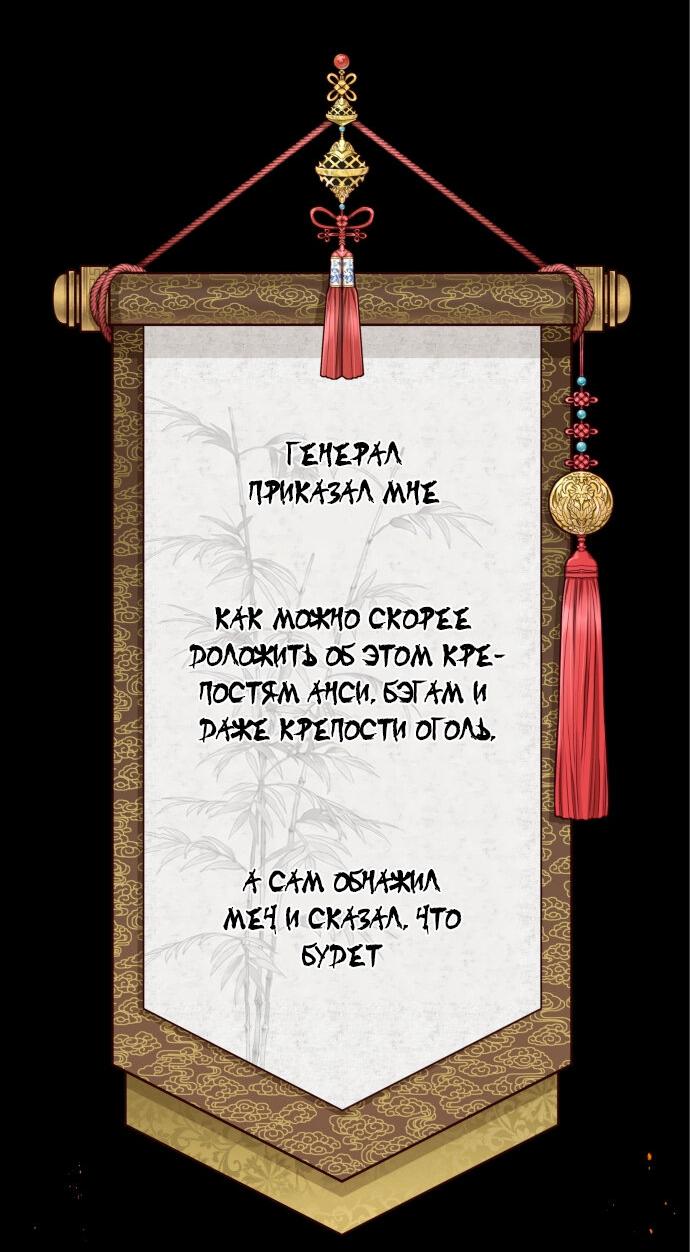 ГЕНЕРАЛ
ПРИКАЗАЛ МНЕ
КАК МОЖНО СКОРЕЕ
ДОЛОЖИТЬ ОБ ЭТОМ КРЕ-
ПОСТЯМ АНСИ, БЭГАМ И
ДАЖЕ КРЕПОСТИ ОГОЛЬ,
А САМ ОБНАЖИЛ
МЕЧ И СКАЗАЛ, ЧТО
БУДЕТ